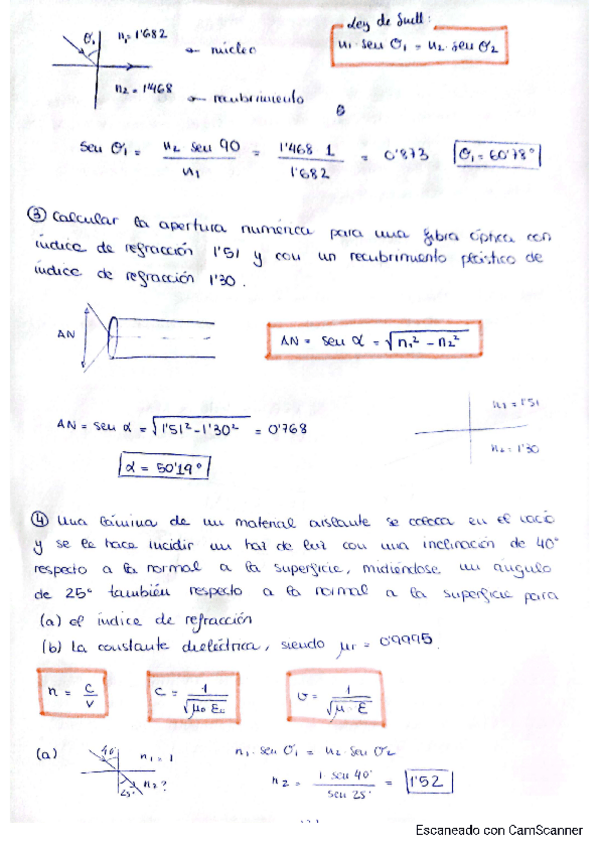 Ley de Snell:
θ₁ n₁=1'682
n₁· sen θ₁ = n₂· sen θ₂
núcleo
n₂= 1'468
recubrimiento
θ
sen θ₁ = n₂ sen 90 / n₁ = 1'468 1 / 1'682 = 0'873 θ₁= 60'78°
③ Calcular la apertura numérica para una fibra óptica con
índice de refracción 1'51 y con un recubrimiento plástico de
índice de refracción 1'30.
AN
AN = sen α = √n₁² - n₂²
n₁ = 1'51
AN = sen α = √1'51² - 1'30² = 0'768
n₂ = 1'30
α = 50'19°
④ Una lámina de un material aislante se coloca en el vacío
y se le hace incidir un haz de luz con una inclinación de 40°
respecto a la normal a la superficie, midiéndose un ángulo
de 25° también respecto a la normal a la superficie para
(a) el índice de refracción
(b) la constante dieléctrica, siendo μr = 0'9995.
n = c/v c = 1/√μ₀ ε₀ v = 1/√μ · ε
(a) 40° n₁ = 1 n₁ · sen θ₁ = n₂ · sen θ₂
25° n₂? n₂ = 1 · sen 40° / sen 25° = 1'52
Escaneado con CamScanner